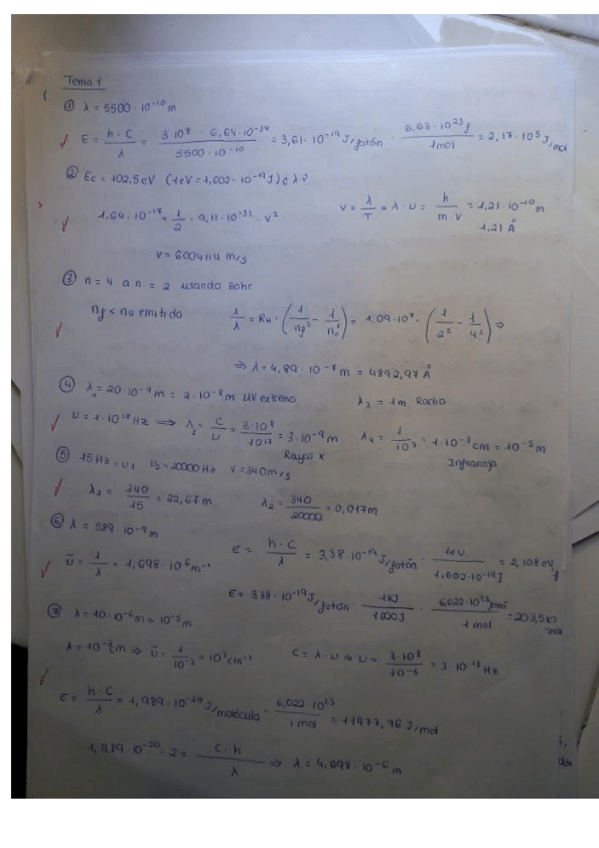 Tema 1
① λ = 5500 · 10⁻¹⁰ m
E = h · C / λ = 3·10⁸ · 6,64·10⁻³⁴ / 5500 · 10⁻¹⁰ = 3,61 · 10⁻¹⁹ J/fotón · 6,63 · 10²³ f / 1 mol = 2,17 · 10⁵ J/mol
② Ec = 102,5 eV (1eV = 1,602 · 10⁻¹⁹ J) ¿ λ?
1,64 · 10⁻¹⁷ = 1/2 · 9,11 · 10⁻³¹ · v²
v = λ/T = λ · υ = h / m · v = 1,21 · 10⁻¹⁰ m
1,21 Å
v = 6004114 m/s
③ n = 4 a n = 2 usando Bohr
nf < no emitido
1/λ = RH · (1/nf² - 1/no²) = 1,09 · 10⁷ · (1/2² - 1/4²) ⇒
⇒ λ = 4,89 · 10⁻⁷ m = 4892,97 Å
④ λ₁ = 20 · 10⁻⁹ m = 2 · 10⁻⁸ m UV extremo
λ₃ = 1m. Radio
υ = 1 · 10¹⁷ Hz ⇒ λ₂ = C/υ = 3·10⁸ / 10¹⁷ = 3 · 10⁻⁹ m
Rayos X
λ₄ = 1/10³ = 1 · 10⁻³ cm = 10⁻⁵ m
Infrarroja
⑤ 15 Hz = υ₁ υ₂ = 20000 Hz v = 340 m/s
λ₁ = 340/15 = 22,67 m
λ₂ = 340/20000 = 0,017m
⑥ λ = 589 · 10⁻⁹ m
ῡ = 1/λ = 1,698 · 10⁶ m⁻¹
E = h · C / λ = 3,38 · 10⁻¹⁹ J/fotón · 1eV / 1,602 · 10⁻¹⁹ J = 2,108 eV/f
E = 3,38 · 10⁻¹⁹ J/fotón · 1KJ / 1000J · 6,022 · 10²³ / 1 mol = 203,5
⑦ λ = 10 · 10⁻⁶ m = 10⁻⁵ m
ῡ = 1/10⁻³ = 10³ cm⁻¹
C = λ · υ ⇒ υ = 3·10⁸ / 10⁻⁵ = 3 · 10¹³ Hz
E = h · C / λ = 1,989 · 10⁻²⁰ J/molécula · 6,022 · 10²³ / 1 mol = 11977,76 J/mol
1,989 · 10⁻²⁰ · 2 = C · h / λ ⇒ λ = 4,998 · 10⁻⁶ m